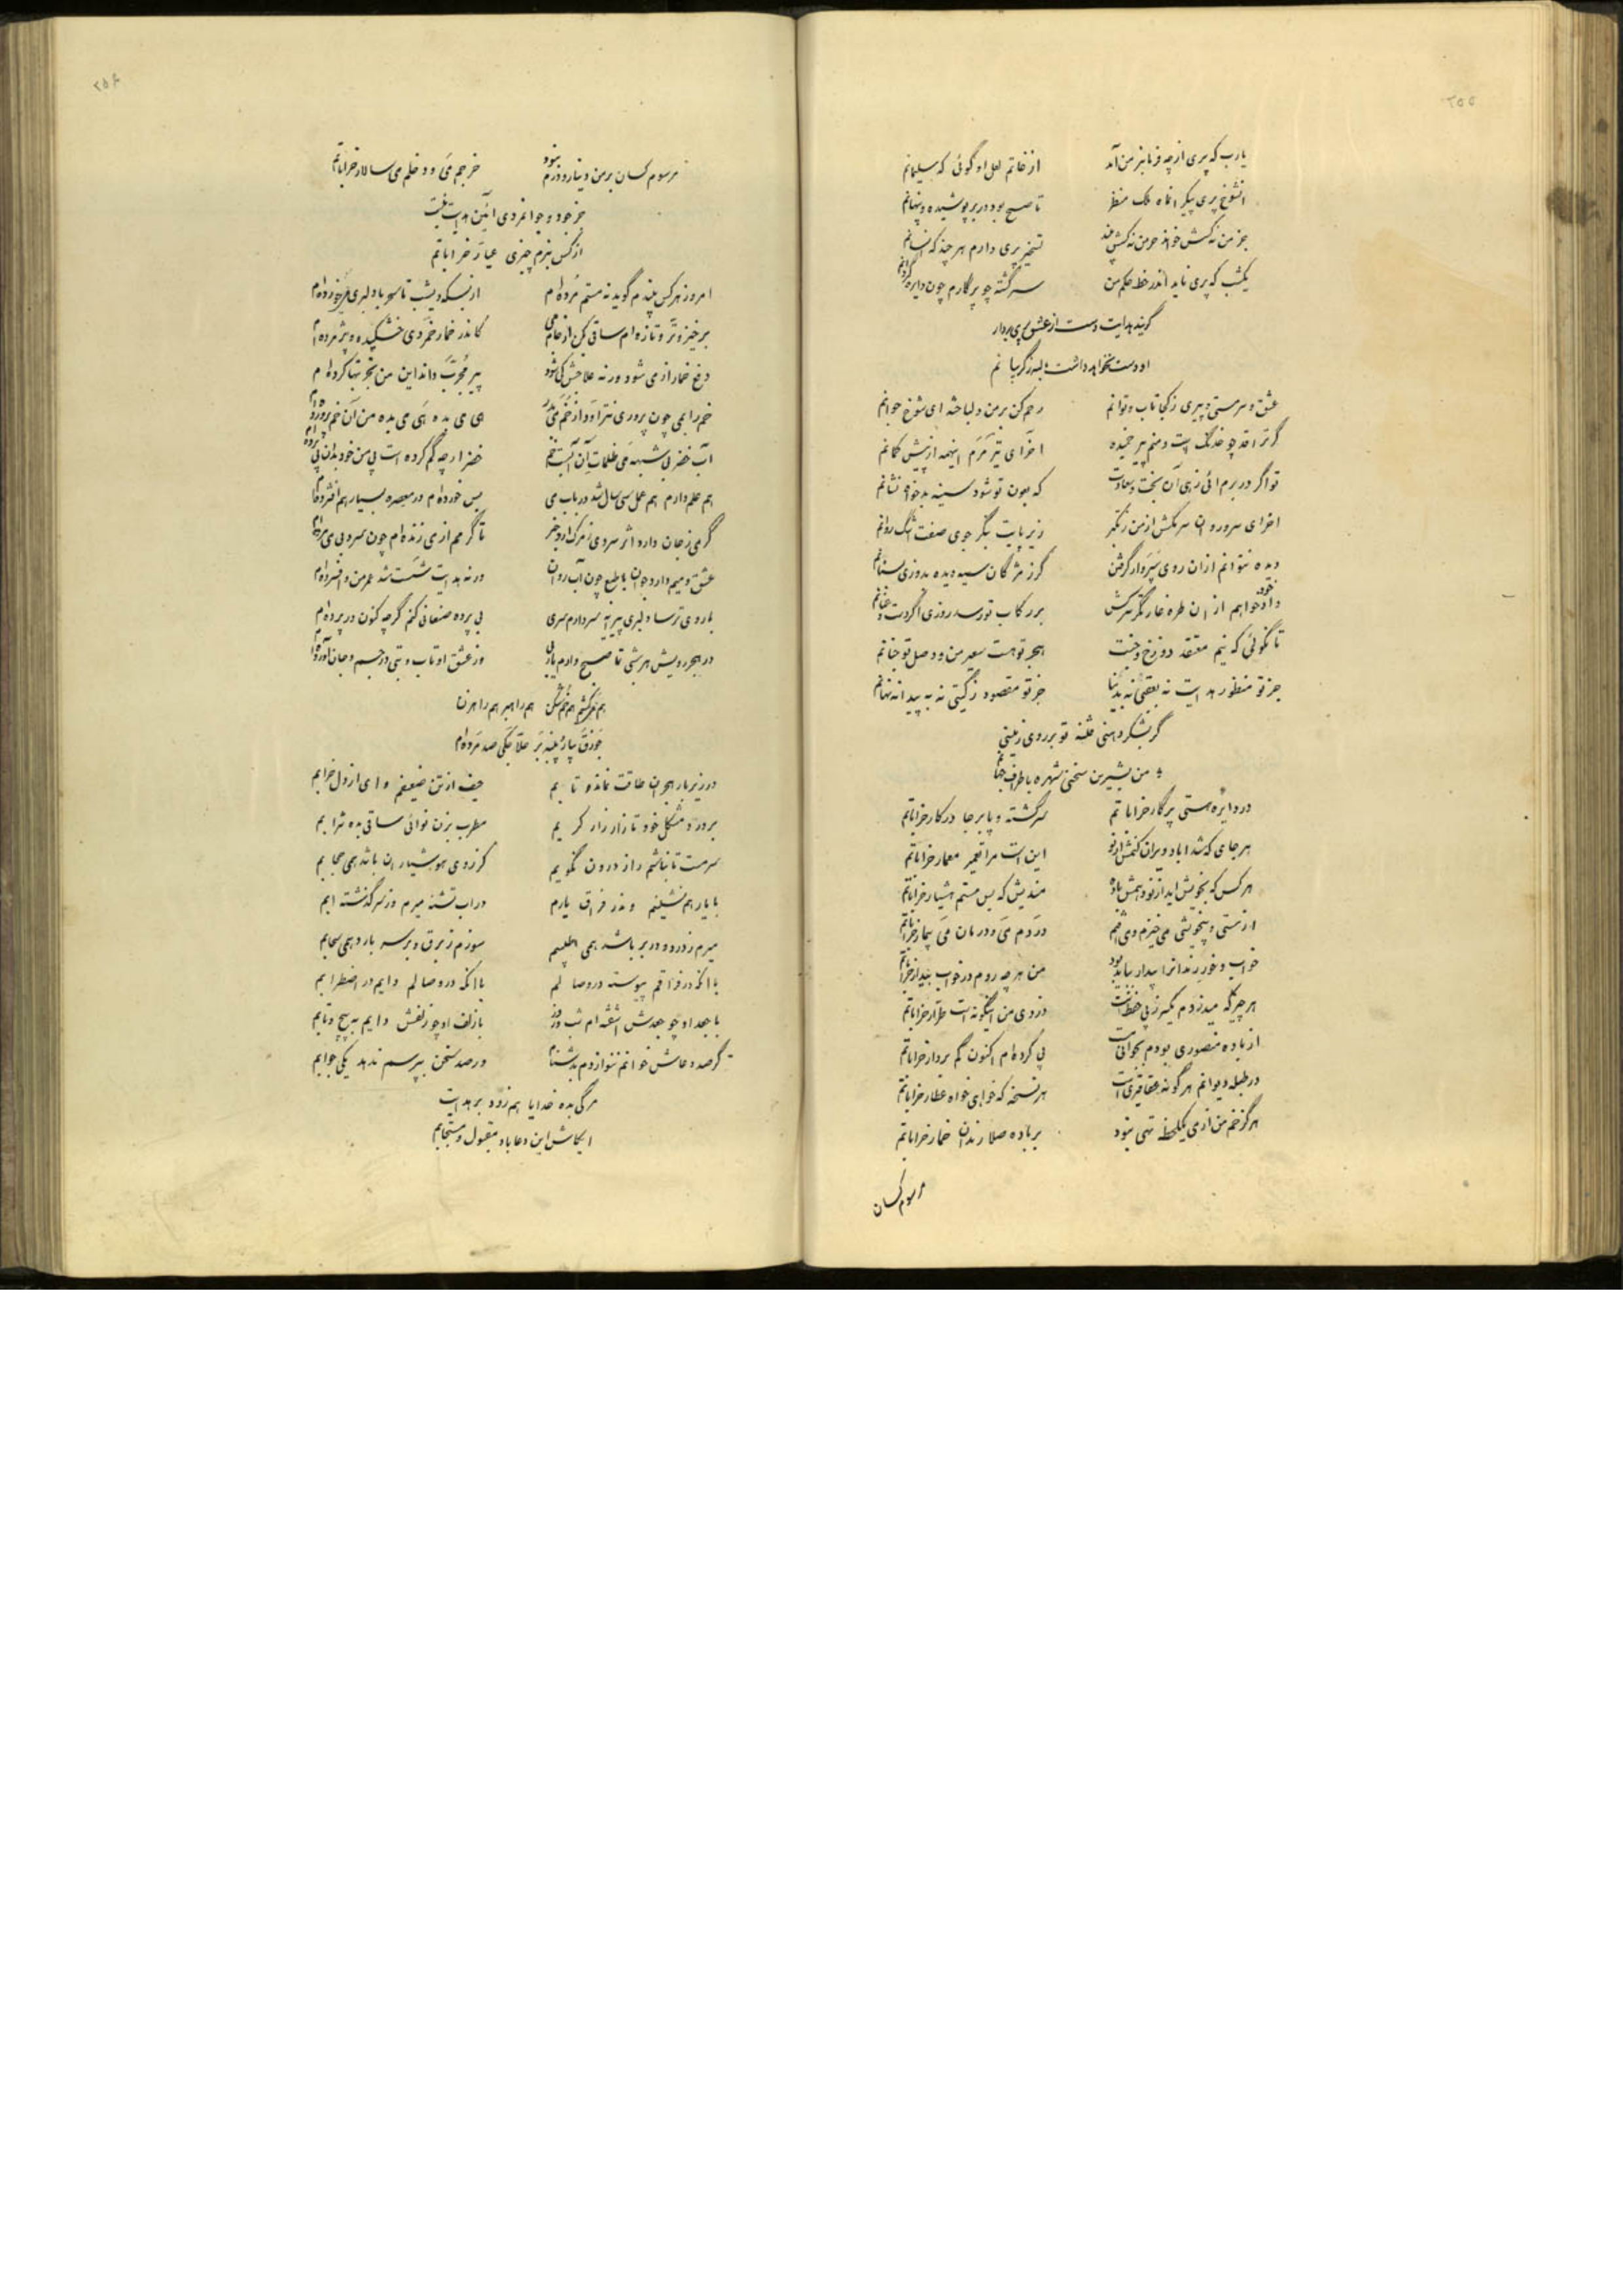 ۲۵۵
یارب که پری از چه فرمانبر من آمد از خاتم لعل او گوئی که سلیمانم
آنشوخ پری پیکر انماه ملک منظر تا صبح بود در بر پوشیده و پنهانم
جز من نه کسش خواند جز من نه کسش بیند تسخیر پری دارم هر چند که انسانم
یکشب که پری ناید اندر خط حکم من سرگشته چو پرگارم چون دایره گردانم
گویند هدایت دست از عشق پری بردار
او دست نخواهد داشت البته ز گریبانم
عشق و سرمستی و پیری ز کجا تاب و توانم رحم کن بر من دلباخته ای شوخ جوانم
گر ترا قد چو خدنگ است و منم پیر خمیده آخر ای تیر مرم اینهمه از پیش کمانم
تو اگر در برم آئی زهی آن بخت و سعادت که بعون تو شود سینه بدخواه نشانم
آخر ای سرو روان سرمکش از من ز تکبر زیر پایت بنگر جوی صفت اشک روانم
دیده نتوانم ازان روی سپروار گرفتن گر ز مژگان سیه دیده بدوزی بسنانم
داد خود خواهم از ان طره غارتگر سرکش بر رکاب تو رسد روزی اگر دست و عنانم
تا نگوئی که نیم معتقد دوزخ و جنت هجر تو هست سعیر من و وصل تو جنانم
جز تو منظور هدایت نه بعقبی نه بدنیا جز تو مقصود ز گیتی نه به پیدا نه نهانم
گر بشکر دهنی فتنه تو بر روی زمینی
من بشیرین سخنی شهره باطراف جهانم
در دایره هستی پرگار خراباتم سرگشته و پابرجا در کار خراباتم
هر جای که شد اباد ویران کنمش از نو این است مرا تعمیر معمار خراباتم
هر کس که بخویش اید از نو دهمش باده مندیش که بس مستم هشیار خراباتم
از مستی و بیخویشی می خیزم و می افتم دردم می و درمان می بیمار خراباتم
خواب و خور رندانرا بیدار بباید بود من هر چه روم در خواب بیدار خراباتم
هر چیز که میدزدم یکسر ز پی حفظ است دزدی من اینگونه است طرار خراباتم
از باده منصوری بودم بجوانی مست پی کرده ام اکنون گم بردار خراباتم
در طبله دیوانم هر گونه عقاقیری است هر نسخه که خواهی خواه عطار خراباتم
هرگز خم من از می یکلحظه تهی نبود بر باده صلا رندان خمار خراباتم
مرسوم کسان
۲۵۶
مرسوم کسان بر من دینار و درم نبود خرجم می و دخلم می سالار خراباتم
جز جود و جوانمردی آئین هدایت نیست
از کس نبرم چیزی عیار خراباتم
امروز هر کس بیندم گوید نه مستم مرده ام از بسکه دیشب تا سحر با دلبری می خورده ام
برخیز و تر و تازه ام ساقی کن از جام می کاندر خمار خمر دی خشکیده و پژمرده ام
دفع خمار از می شود ورنه علاجش کی شود پیر مجرب داند این من تجربتها کرده ام
خم را بمی چون پروری نتراود از خم می بدر هی می بده هی می بده من آن خم پرورده ام
آب خضر بی شبهه می ظلمات آن آب است خم خضر ار چه گم کرده است پی من خود بدان پی برده ام
هم علم دارم هم عمل سی سال شد در باب می بس خورده ام در معصره بسیار هم افشرده ام
گرمی ز جان دارد اثر سردی ز مرگ ارد خبر تا گرمم از می زنده ام چون سرد بی می مرده ام
عشق و میم دارد جوان با طبع چون آب روان ورنه هدایت شست شد عمر من و افسرده ام
با روی ترسا دلبری پیرانه سر دارم سری بی پرده صنعانی کنم گر چه کنون در پرده ام
در هجر رویش هر شبی تا صبح دارم یاربی وز عشق او تاب و تبی در جسم و جان آورده ام
هم خم کشم هم خم شکن هم راهبر هم راهزن
جوزق بپاره پنبه بر حلاجکی صد مرده ام
در زیر بار هجران طاقت نماند و تابم حیف از تن ضعیفم وای از دل خرابم
بر درد مشکل خود تا زار زار گریم مطرب بزن نوائی ساقی بده شرابم
سرمست تا نباشم راز درون نگویم کز روی هوشیاران باشد همی حجابم
با یار هم نشینم وندر فراق یارم در اب تشنه میرم وز سر گذشته ابم
میرم ز درد و در بر باشد همی طبیبم سوزم ز برق و بر سر بارد همی سحابم
با انکه در فراقم پیوسته در وصالم با انکه در وصالم دایم در اضطرابم
با جعد او چو جعدش آشفته ام شب و روز با زلف او چو زلفش دایم به پیچ و تابم
گر صد دعاش خوانم ننوازدم بدشنام ور صد سخن بپرسم ندهد یکی جوابم
مرگی بده خدایا هم زود بر هدایت
ایکاش این دعا باد مقبول و مستجابم